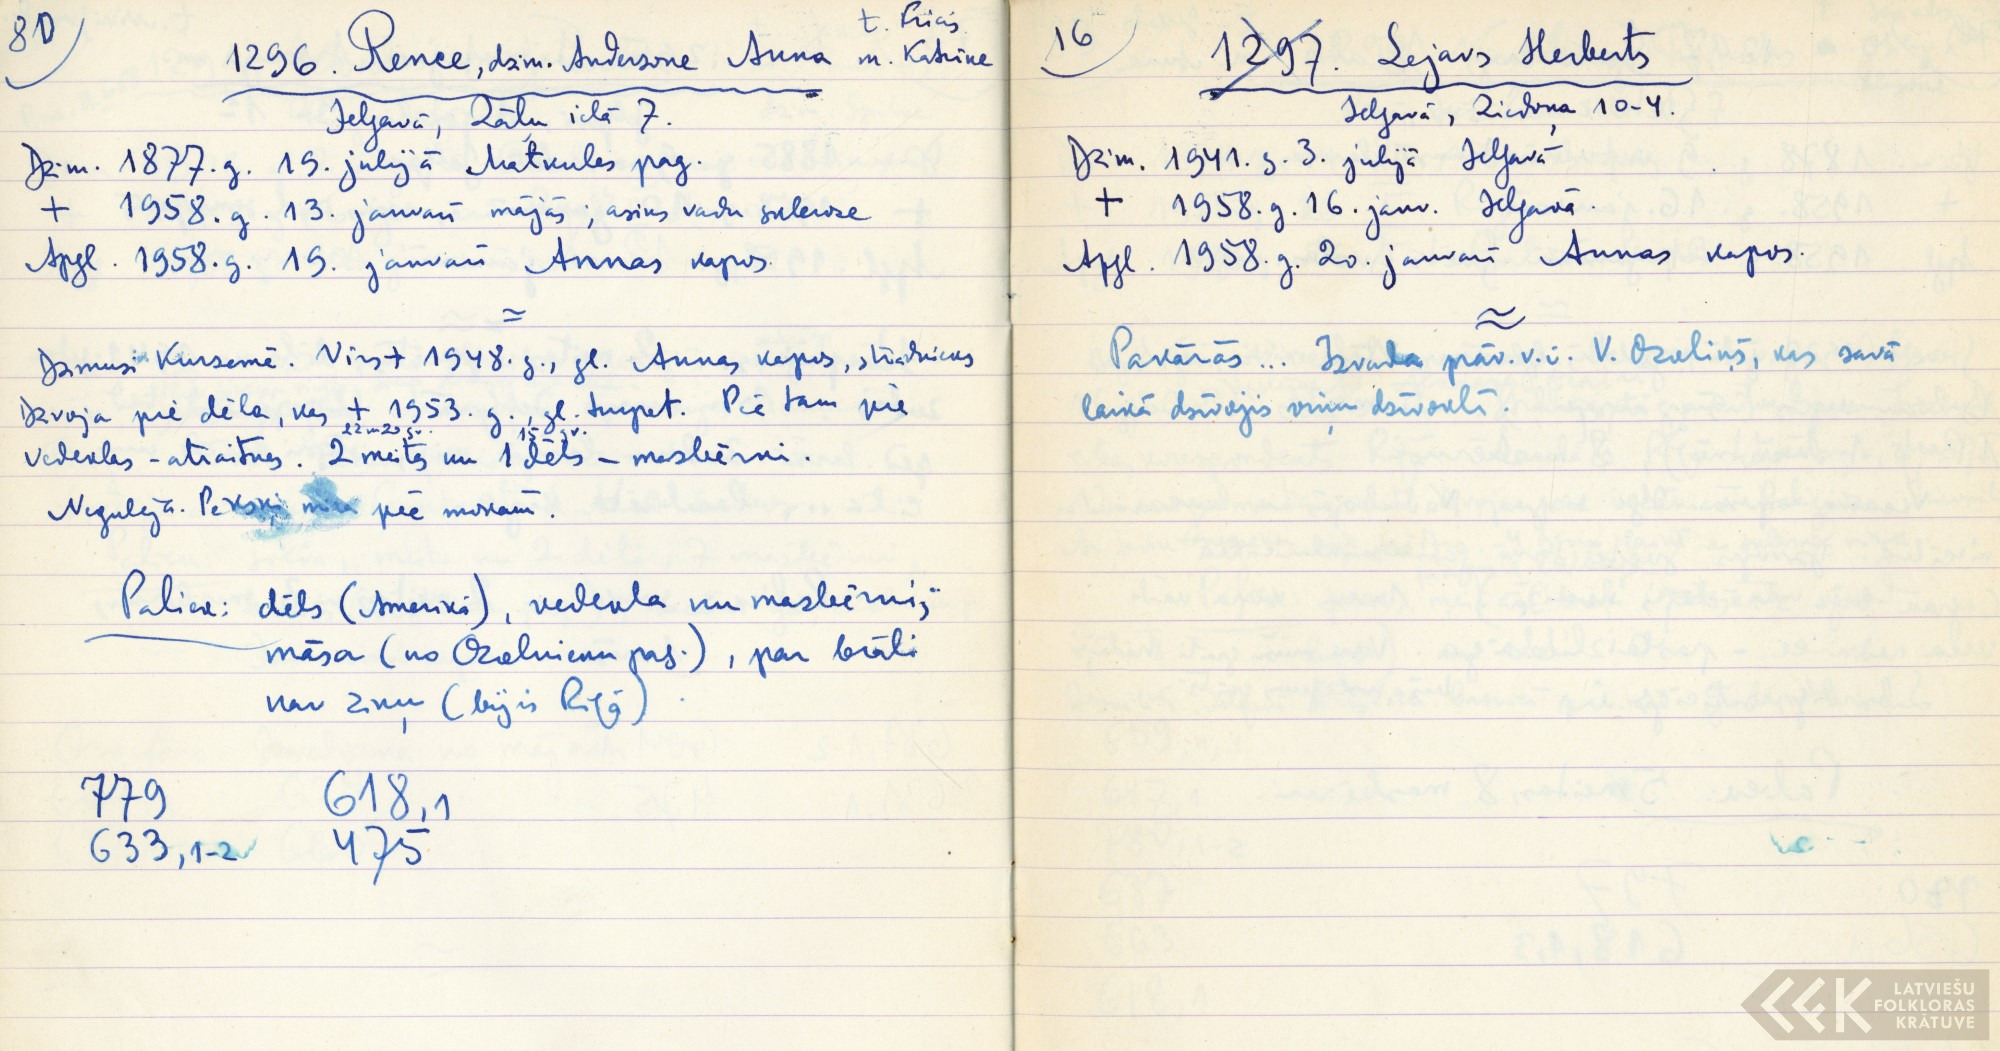 80
t. Fricis
1296. Rence, dzim. Andersone Anna m. Katrīne
Jelgavā, Zāļu ielā 7.
Dzim. 1877. g. 19. julijā Matkules pag.
+ 1958. g. 13. janvarī mājās; asins vadu skleroze
Apgl. 1958. g. 19. janvarī Annas kapos.
=
Dzimusi Kurzemē. Vīrs + 1948. g., gl. Annas kapos, strādnieks
Dzīvoja pie dēla, kas + 1953. g., gl. turpat. Pēc tam pie
22 un 20 gv. 15 gv.
vedeklas - atraitnes. 2 meitas un 1 dēls - mazbērni.
Negulēja. Pēkšņi pēc
Paliek: dēls (Amerikā), vedekla un mazbērni;
māsa (no Ozolnieku pag.), par brāli
nav ziņu (bijis Rīgā)
779 618,1
633,1-2 475
16
1297. Lejavs Herberts
Jelgavā, Ziedoņa 10-4.
Dzim. 1941. g. 3. julijā Jelgavā
+ 1958. g. 16. janv. Jelgavā.
Apgl. 1958. g. 20. janvarī Annas kapos.
≈
Pakāries... Izvada prāv. v. i. V. Ozoliņš, kas savā
laikā dzīvojis viņu dzīvoklī.
LATVIEŠU
FOLKLORAS
KRĀTUVE